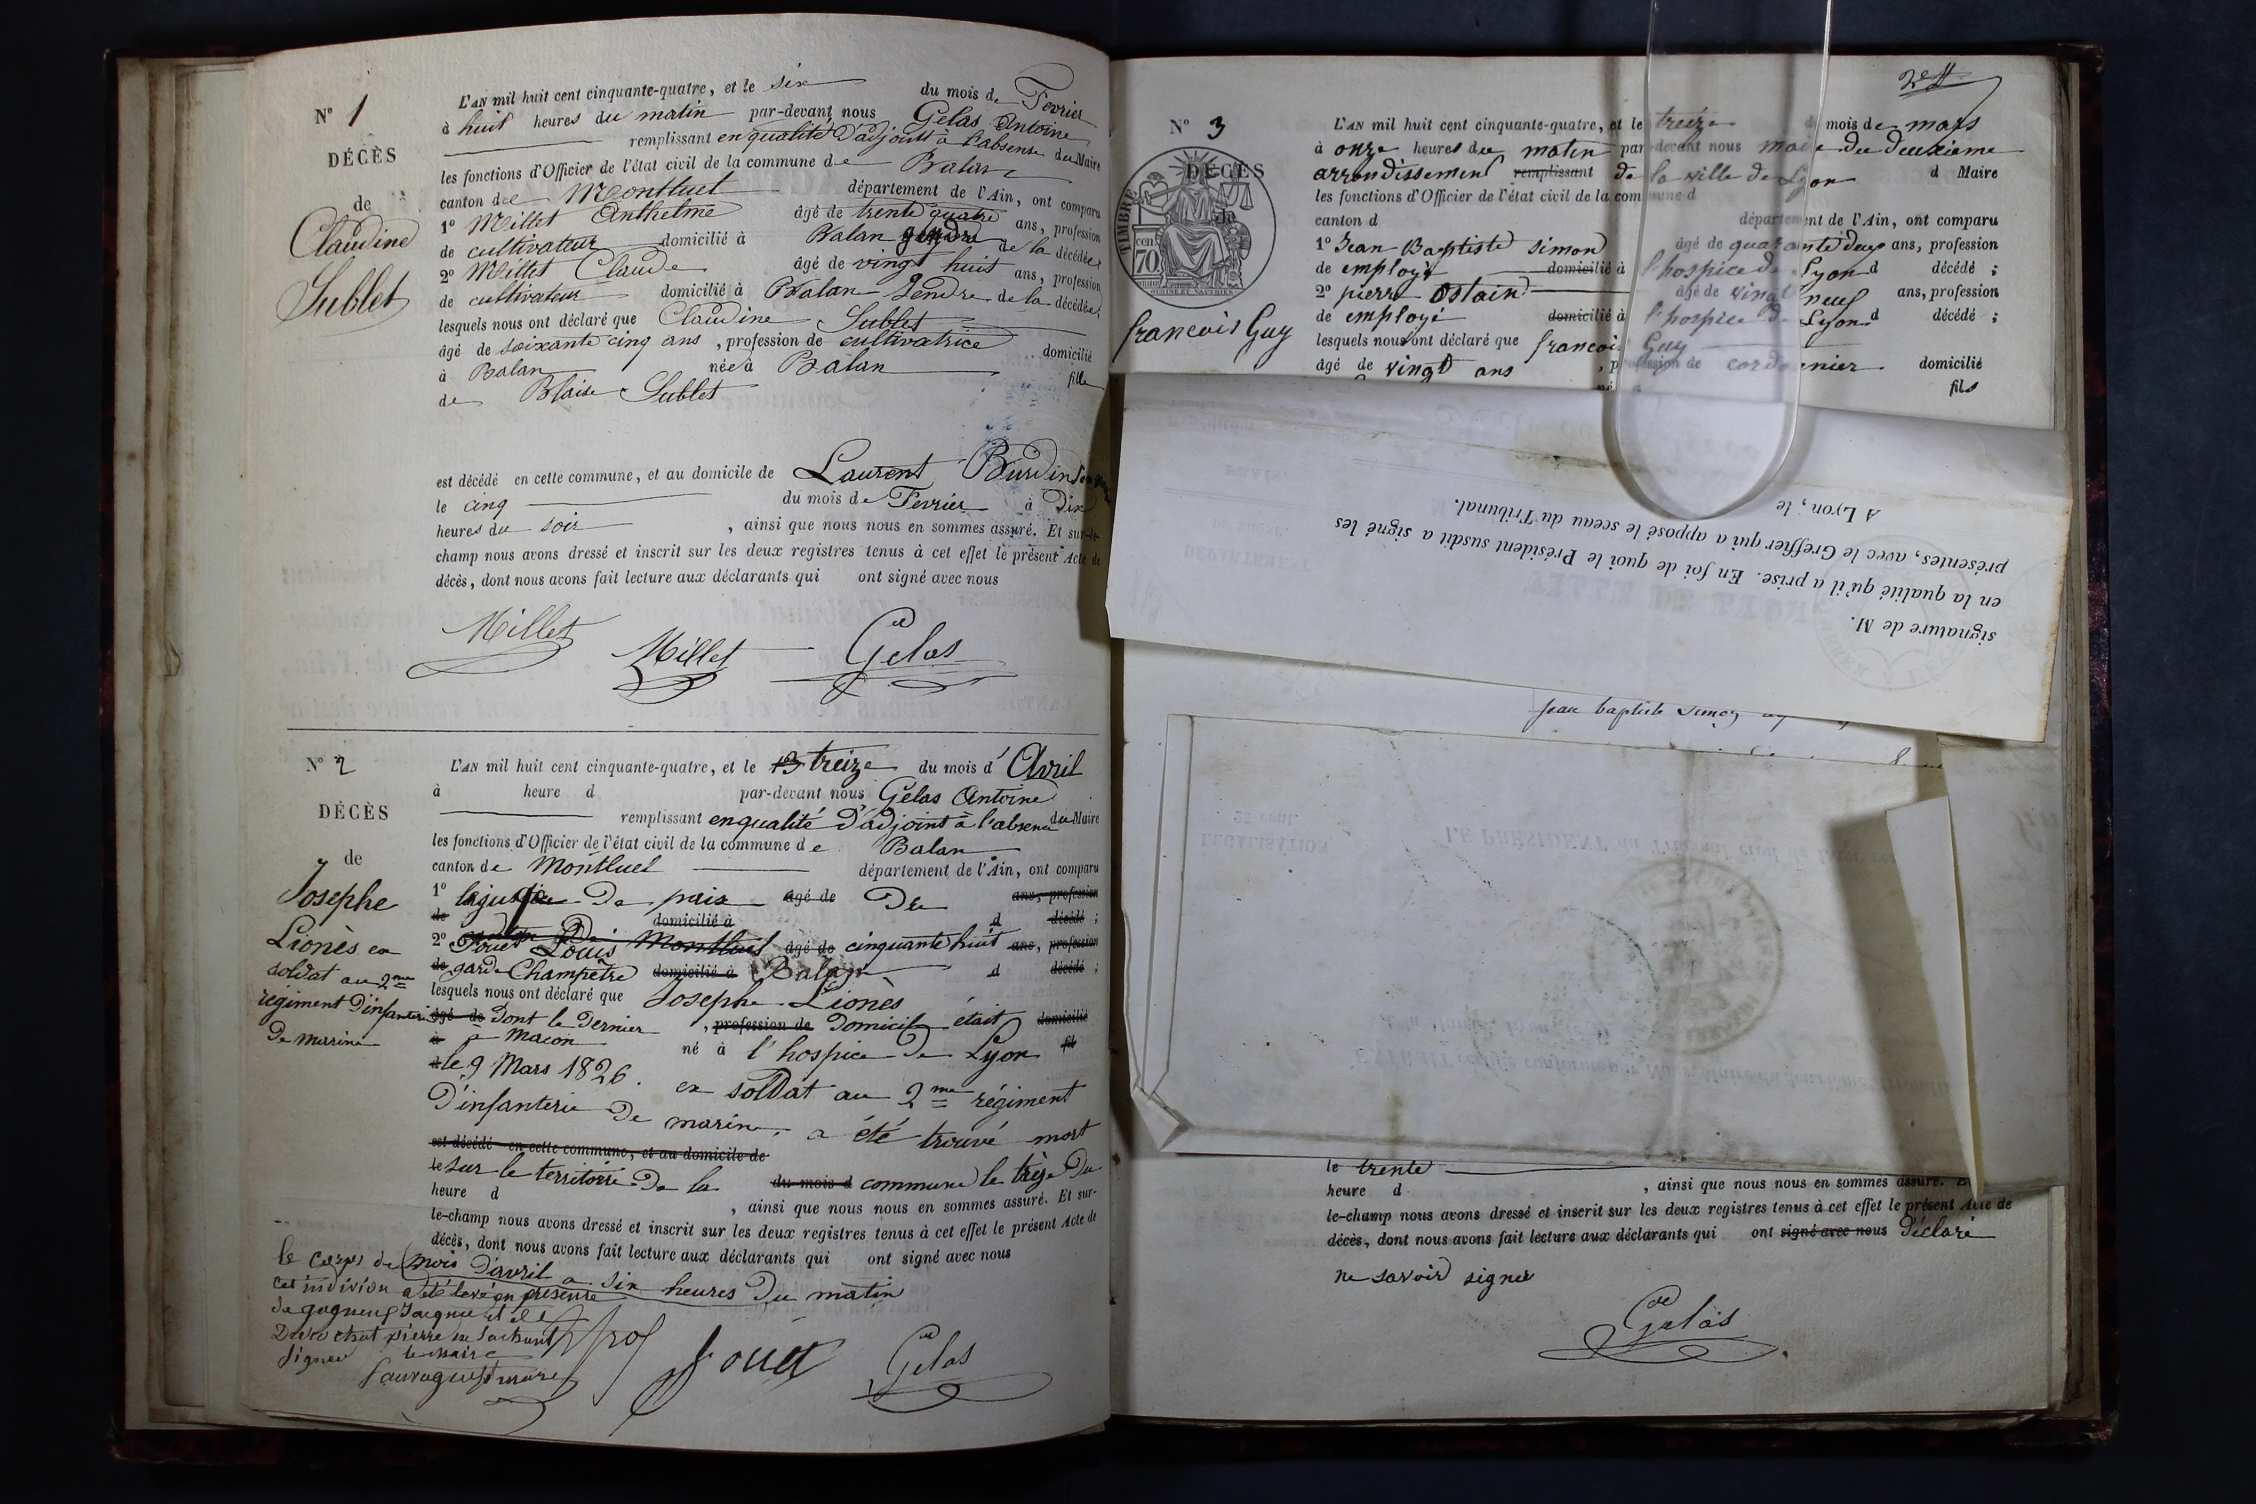 N° 1
DÉCÈS
de
Claudine
Sublet
L'AN mil huit cent cinquante-quatre, et le six du mois de Fevrier
à huit heures du matin par-devant nous Gelas Antoine
remplissant en qualité d'adjoint à l'absence du Maire
les fonctions d'Officier de l'état civil de la commune de Balan
canton de Montluel département de l'Ain, ont comparu
1° Millet Anthelme âgé de trente quatre ans, profession
de cultivateur domicilié à Balan gendre de la décédée
2° Millet Claude âgé de vingt huit ans, profession
de cultivateur domicilié à Balan Gendre de la décédée;
lesquels nous ont déclaré que Claudine Sublet
âgé de soixante cinq ans, profession de cultivatrice domicilié
à Balan née à Balan fille
de Blaise Sublet
est décédé en cette commune, et au domicile de Laurent Burdin
le cinq du mois de Fevrier à Dix
heures du soir, ainsi que nous nous en sommes assuré. Et sur-le-
champ nous avons dressé et inscrit sur les deux registres tenus à cet effet le présent Acte de
décès, dont nous avons fait lecture aux déclarants qui ont signé avec nous
Millet Millet Gelas
N° 2
DÉCÈS
de
Josephe
Lionès ex
soldat au 2me
régiment D'infanterie
De marine
L'AN mil huit cent cinquante-quatre, et le 13 treize du mois d'Avril
à heure d par-devant nous Gelas Antoine
remplissant en qualité d'adjoint à l'absence du Maire
les fonctions d'Officier de l'état civil de la commune de Balan
canton de Montluel département de l'Ain, ont comparu
1° le juge De paix âgé de De ans, profession
de domicilié à d décédé;
2° Fouet Louis Montluel âgé de cinquante huit ans, profession
de garde Champêtre domicilié à Balan d décédé;
lesquels nous ont déclaré que Josephe Lionès
âgé de Dont le Dernier, profession de Domicile était domicilié
à a Macon né à l'hospice De Lyon fil
d le 9 Mars 1826. ex soldat au 2me régiment
D'infanterie De marine, a été trouvé mort
est décédé en cette commune, et au domicile de
le Sur le territoire De la du mois d commune le trèze Du
heure d, ainsi que nous nous en sommes assuré. Et sur-
le-champ nous avons dressé et inscrit sur les deux registres tenus à cet effet le présent Acte de
décès, dont nous avons fait lecture aux déclarants qui ont signé avec nous
mois D'avril a six heures Du matin
le corps de
cet individu a été levé en présence
de gagneux
pierre ne sachant
signer le maire
Fouet Gelas
2e
N° 3
DÉCÈS
de
TIMBRE
cen
70
francois Guy
L'AN mil huit cent cinquante-quatre, et le treize du mois de mars
à onze heures du matin par-devant nous maire du deuxieme
arrondissement remplissant de la ville de Lyon d Maire
les fonctions d'Officier de l'état civil de la commune d
canton d département de l'Ain, ont comparu
1° Jean Baptiste simon âgé de quarante deux ans, profession
de employé domicilié à l'hospice de Lyon d décédé;
2° pierre Ostain âgé de vingt neuf ans, profession
de employé domicilié à l'hospice de Lyon d décédé;
lesquels nous ont déclaré que francois Guy
âgé de vingt ans, profession de cordonnier domicilié
né à fils
signature de M.
en la qualité qu'il a prise. En foi de quoi le Président susdit a signé les
présentes, avec le Greffier qui a apposé le sceau du Tribunal.
A Lyon, le
jean baptiste simon
le trente
heure d, ainsi que nous nous en sommes assuré. E
le-champ nous avons dressé et inscrit sur les deux registres tenus à cet effet le présent Acte de
décès, dont nous avons fait lecture aux déclarants qui ont signé avec nous déclaré
ne savoir signer
Gelas